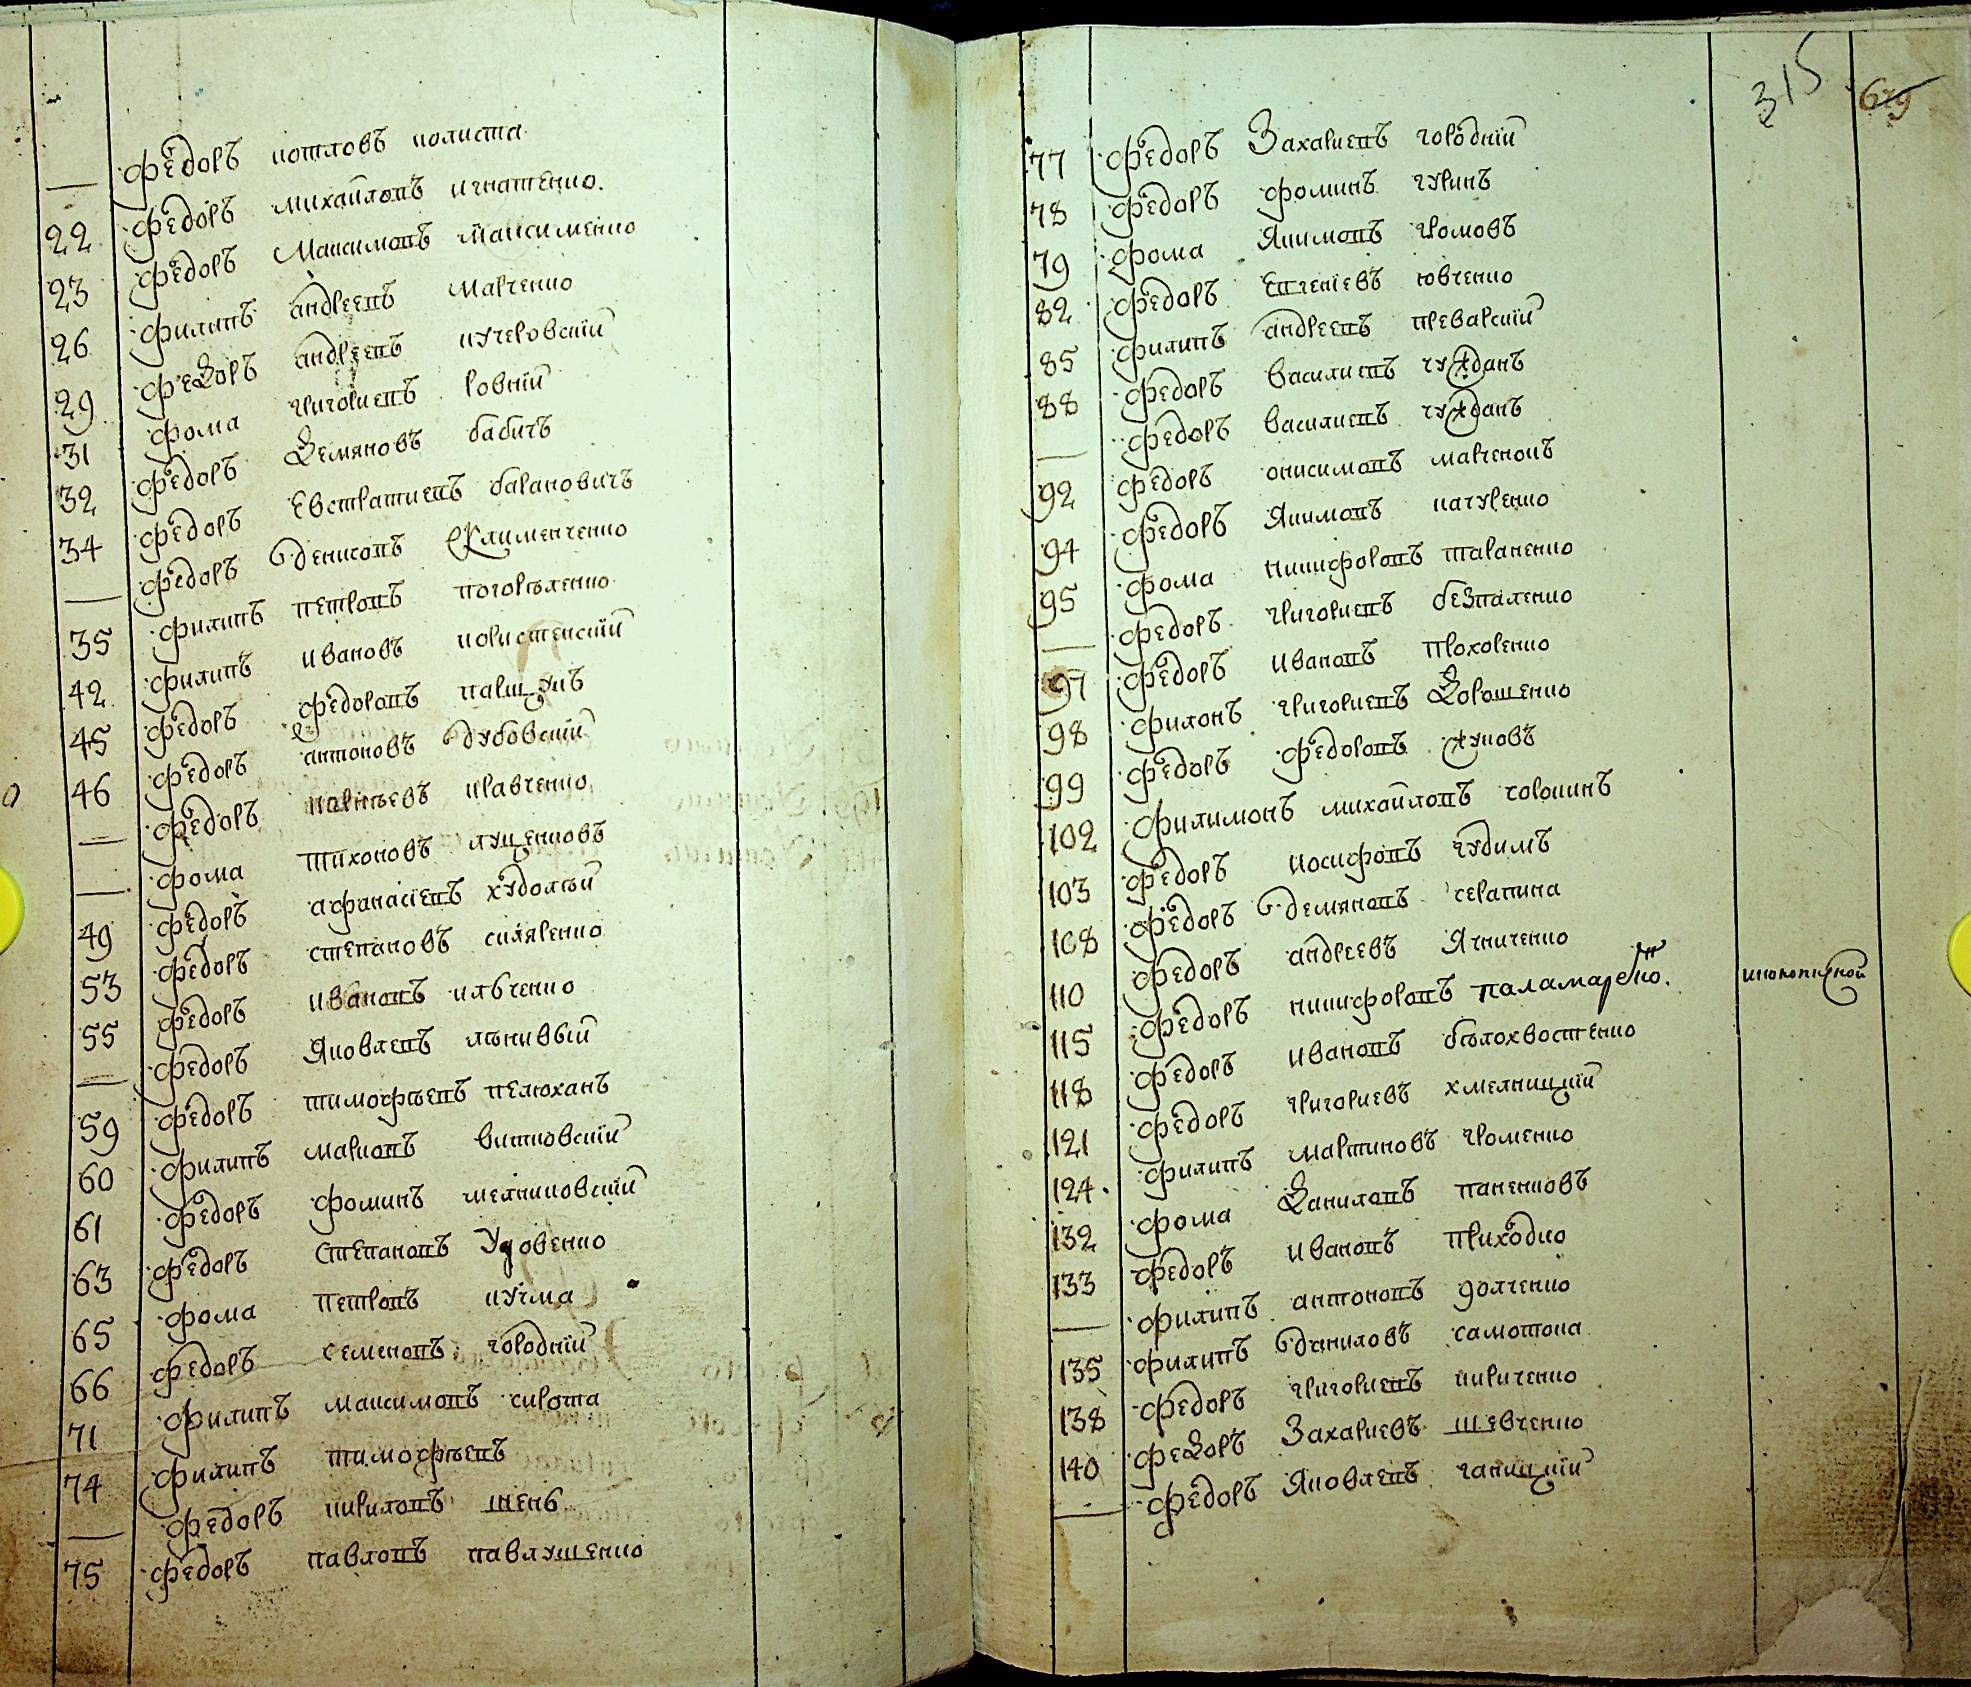 — федоръ котловъ колиста
22 федоръ михайловъ игнатенко.
23 федоръ максимовъ максименко
26 филипъ андреевъ марченко
29 федоръ андреевъ кучеровский
31 фома григориевъ ровний
32 федоръ демяновъ бабичъ
34 федоръ евстратиевъ баранович
— федоръ денисовъ клименченко
35 филипъ петровъ погорѣленко
42 филипъ ивановъ користенский
45 федоръ федоровъ паршукъ
46 федоръ антоновъ дубовский
— федоръ кравченко
— фома тихоновъ луценковъ
49 федоръ афанасиевъ худолѣй
53 федоръ степановъ скляренко
55 федоръ ивановъ илвченко
— федоръ яковлевъ лѣнивый
59 федоръ тимофѣевъ пелюханъ
60 филипъ марковъ витковский
61 федоръ фоминъ мелниковский
63 федоръ степановъ удовенко
65 фома петровъ кучма
66 федоръ семеновъ городний
71 филипъ максимовъ сирота
74 филипъ тимофѣевъ
— федоръ кириловъ
75 федоръ павловъ павлушенко
315
679
77 федоръ захариевъ городний
78 федоръ фоминъ гуринъ
79 фома якимовъ громовъ
82 федоръ евгениевъ ювченко
85 филипъ андреевъ преварский
88 федоръ василиевъ гужданъ
— федоръ василиевъ гужданъ
92 федоръ онисимовъ марченокъ
94 федоръ якимовъ качуренко
95 фома никифоровъ тараненко
— федоръ григориевъ безпаленко
97 федоръ ивановъ прохоренко
98 филонъ григориевъ дорошенко
99 федоръ федоровъ жуковъ
102 филимонъ михайловъ сорокинъ
103 федоръ иосифовъ гудимъ
108 федоръ демяновъ серапина
110 федоръ андреевъ ягниченко
115 федоръ никифоровъ паламаренко. инокописной
118 федоръ ивановъ бѣлохвостенко
121 федоръ григориевъ хмелницкий
124. филипъ мартиновъ громенко
132 фома даниловъ паненковъ
133 федоръ ивановъ приходко
— филипъ антоновъ долченко
135 филипъ даниловъ самотока
138 федоръ григориевъ кириченко
140 федоръ захариевъ шевченко
— федоръ яковлевъ ганицкий